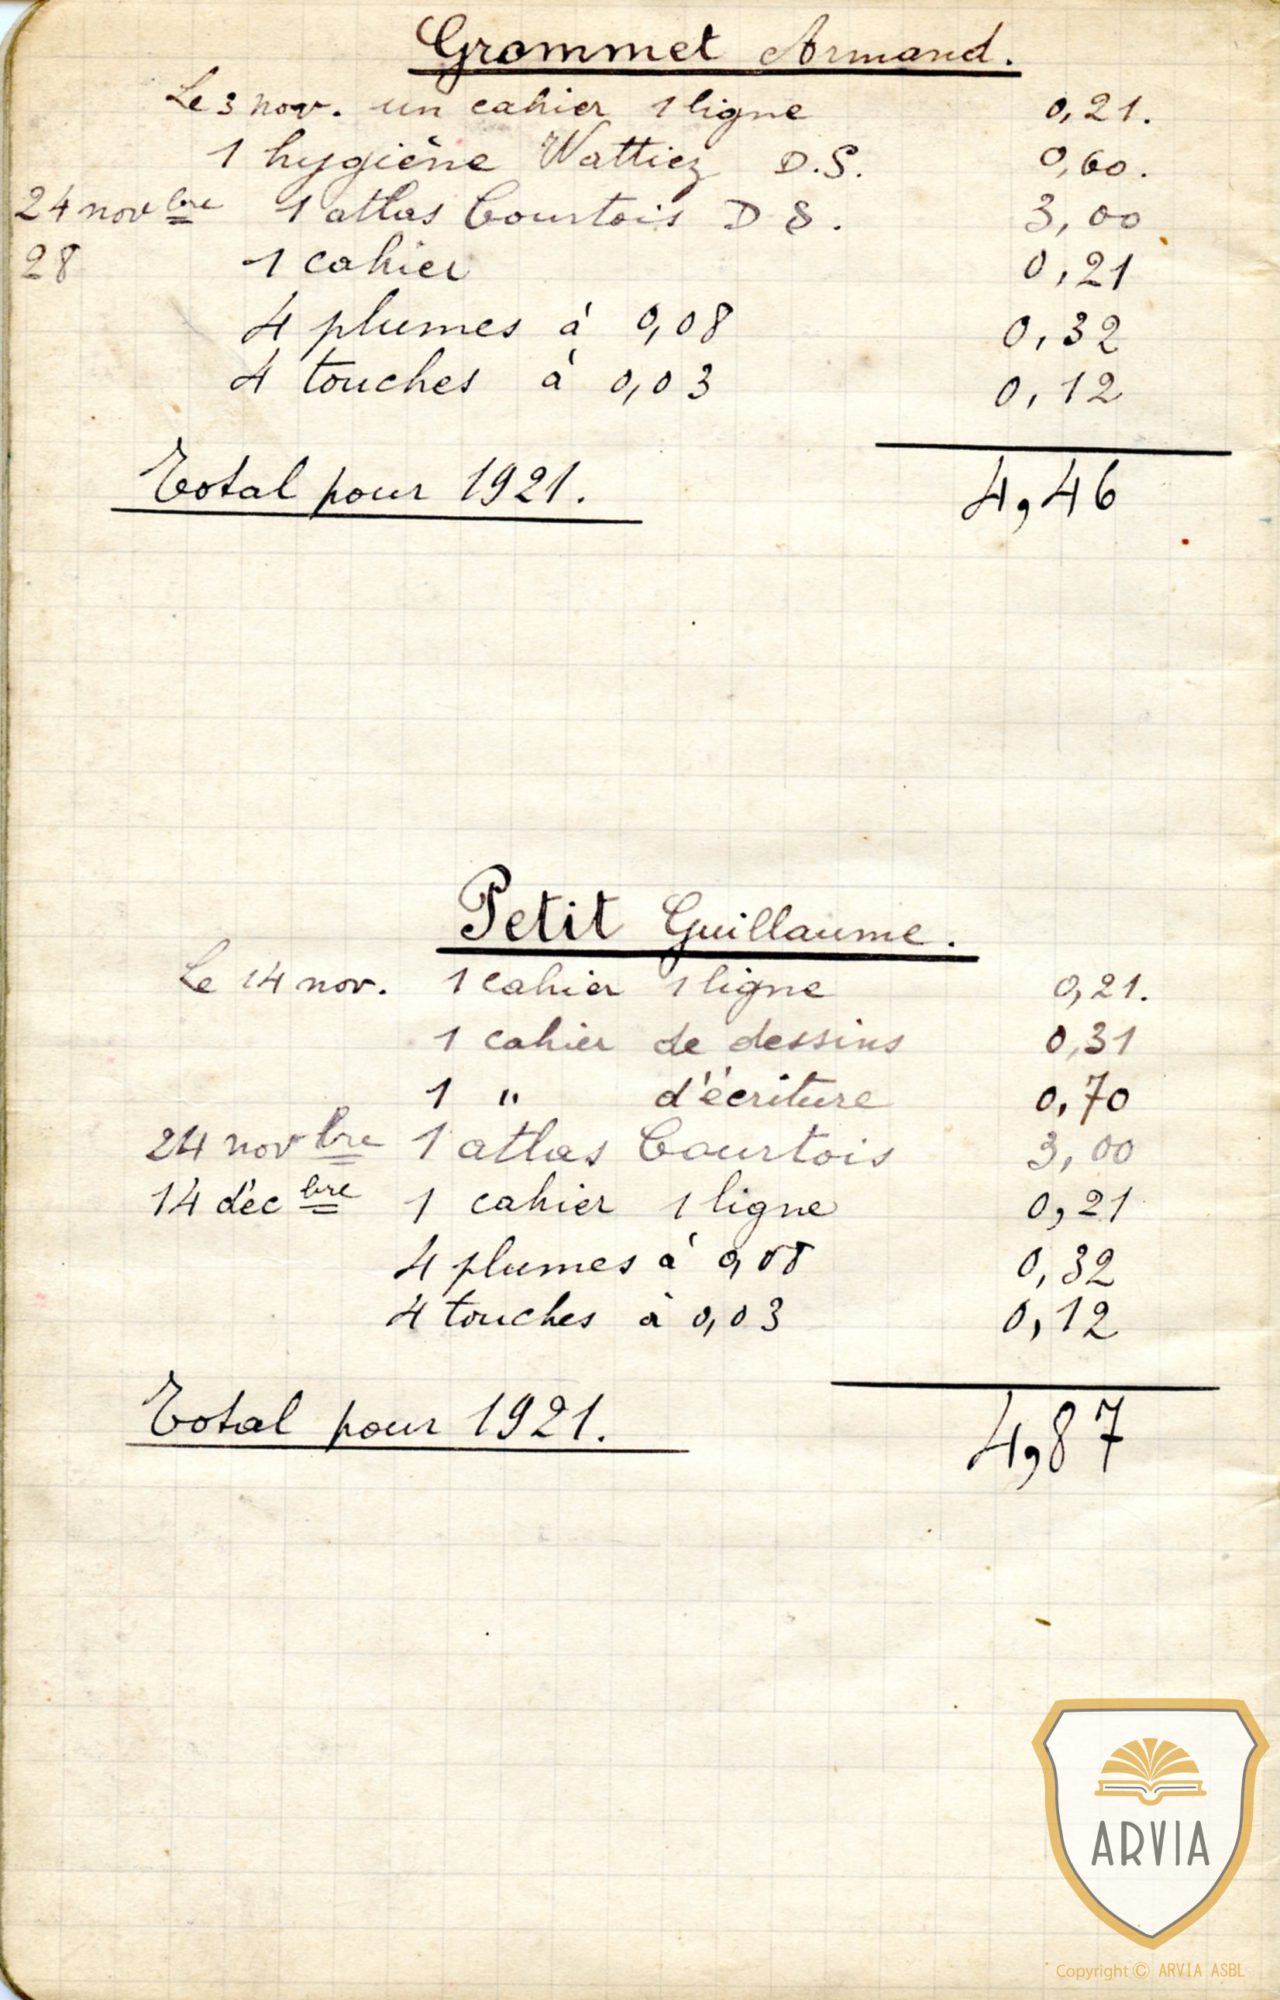 Grommet Armand.
Le 3 nov. un cahier 1 ligne 0,21.
1 hygiène Wattiez D.S. 0,60.
24 novbre 1 atlas Courtois D S. 3,00
28 1 cahier 0,21
4 plumes à 0,08 0,32
4 touches à 0,03 0,12
Total pour 1921. 4,46
Petit Guillaume.
Le 14 nov. 1 cahier 1 ligne 0,21.
1 cahier de dessins 0,31
1 " d'écriture 0,70
24 novbre 1 atlas Courtois 3,00
14 décbre 1 cahier 1 ligne 0,21
4 plumes à 0,08 0,32
4 touches à 0,03 0,12
Total pour 1921. 4,87
ARVIA
Copyright © ARVIA ASBL